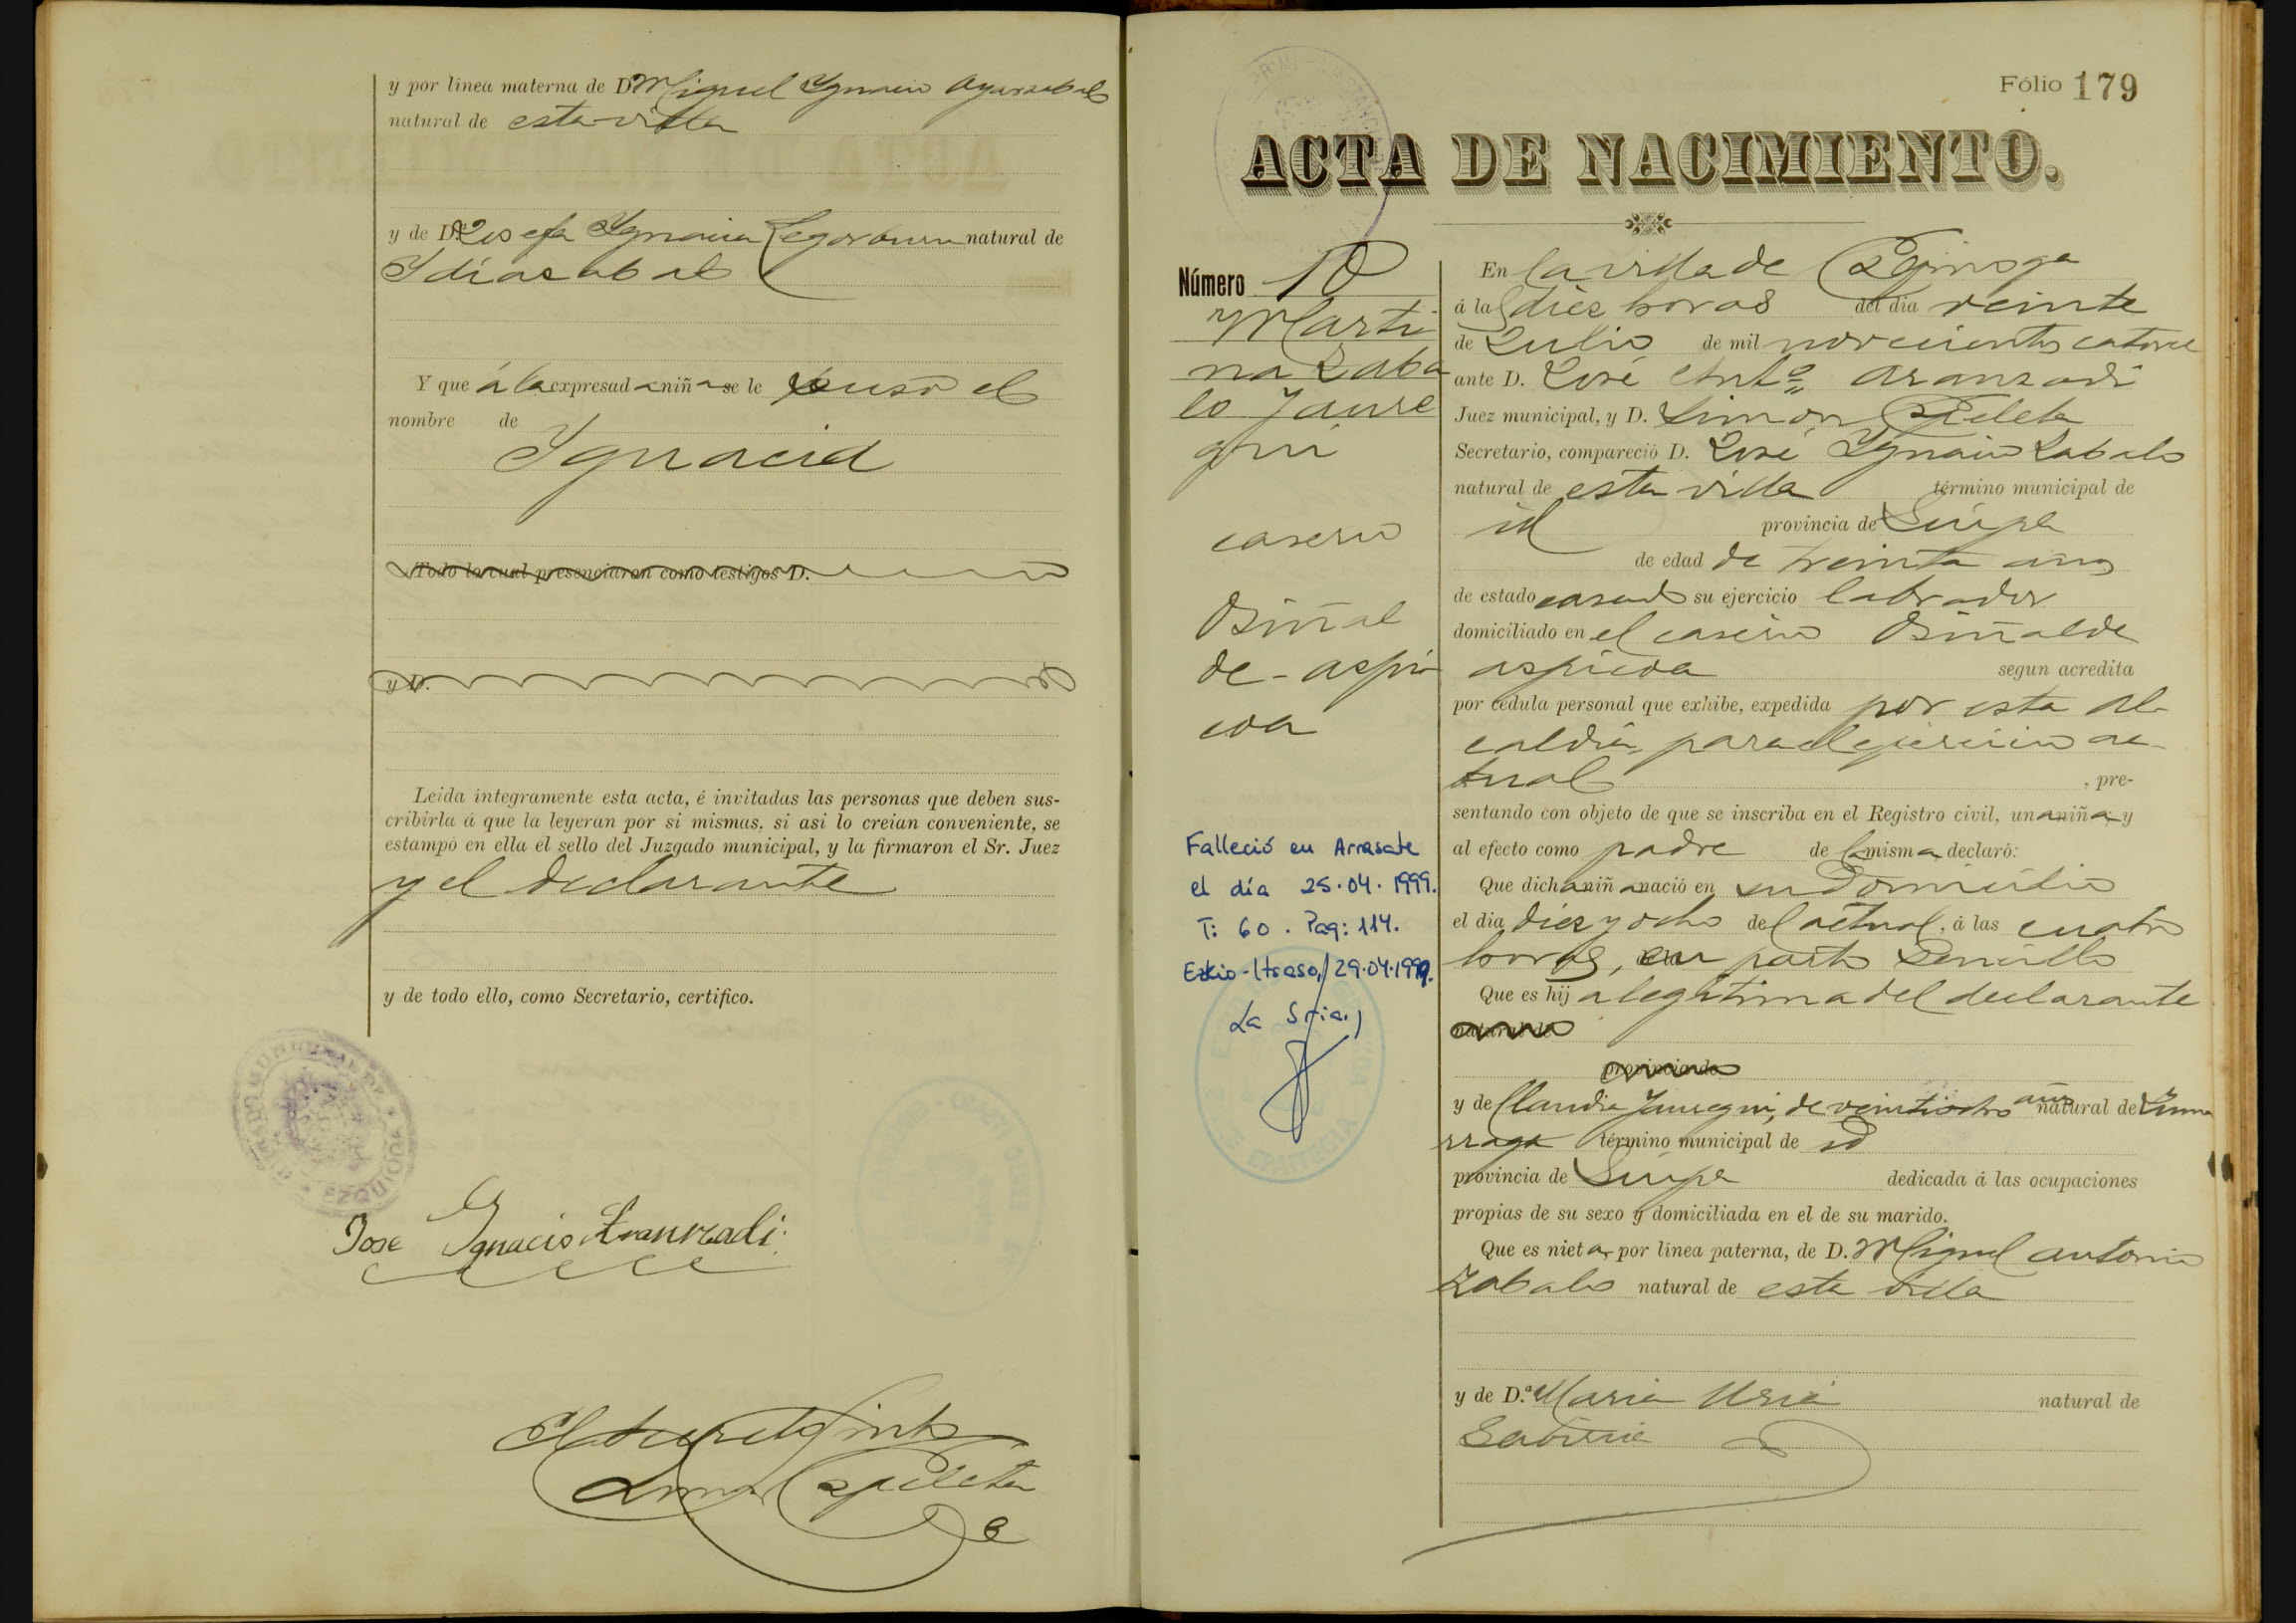 y por línea materna de D. Miguel Ygnacio Ayarzabal
natural de esta villa
y de D.ª Josefa Ygnacia Legorburu natural de
Ydiazabal
Y que á la expresad a niñ a se le puso el
nombre de
Ygnacia
Todo lo cual presenciaron como testigos D.
y D.
Leida íntegramente esta acta, é invitadas las personas que deben sus-
cribirla á que la leyeran por si mismas, si asi lo creian conveniente, se
estampó en ella el sello del Juzgado municipal, y la firmaron el Sr. Juez
y el declarante
y de todo ello, como Secretario, certifico.
JUZGADO MUNICIPAL DE EZQUIOGA
Jose Ygnacio Aranzadi
Simon Espeleta
Fólio 179
ACTA DE NACIMIENTO.
Número 10
Marti
na Zaba
lo Jaure
gui
caserio
Osiñal
de-aspi
coa
Falleció en Arrasate
el día 25.04.1999.
T: 60. Pag: 114.
Ezkio-Itsaso, 29.04.1999.
La Sria.,
En la villa de Ezquioga
á las diez horas del dia veinte
de Julio de mil novecientos catorce
ante D. José Ant.º Aranzadi
Juez municipal, y D. Simon Espeleta
Secretario, compareció D. José Ygnacio Zabalo
natural de esta villa término municipal de
id provincia de Guipa
de edad de treinta años
de estado casado su ejercicio labrador
domiciliado en el caserio Osiñalde
aspicoa segun acredita
por cédula personal que exhibe, expedida por esta Al-
caldía, para el ejercicio ac-
tual, pre-
sentando con objeto de que se inscriba en el Registro civil, un a niñ a y
al efecto como padre de la mism a declaró:
Que dich a niñ a nació en su domicilio
el dia diez y ocho del actual á las cuatro
horas, en parto sencillo
Que es hij a legitima del declarante
natural de
provincia de
y de Claudia Jauregui, de veintiocho años natural de Zuma
rraga término municipal de id
provincia de Guipa dedicada á las ocupaciones
propias de su sexo y domiciliada en el de su marido.
Que es niet a por línea paterna, de D. Miguel Antonio
Zabalo natural de esta villa
y de D.ª Maria Uria natural de
Gabiria